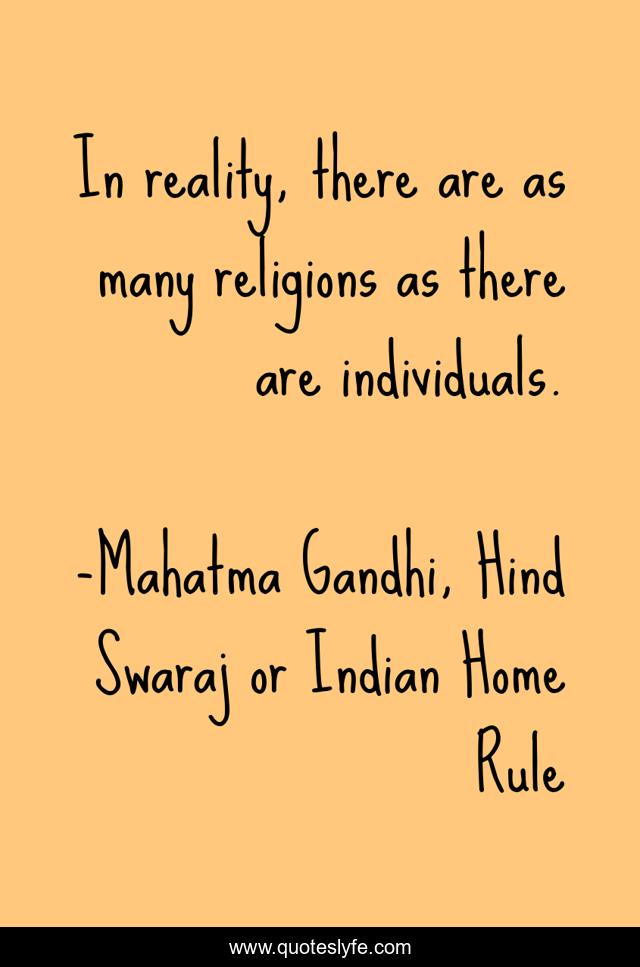 In reality, there are as
many religions as there
are individuals.
-Mahatma Gandhi, Hind
Swaraj or Indian Home
Rule
www.quoteslyfe.com